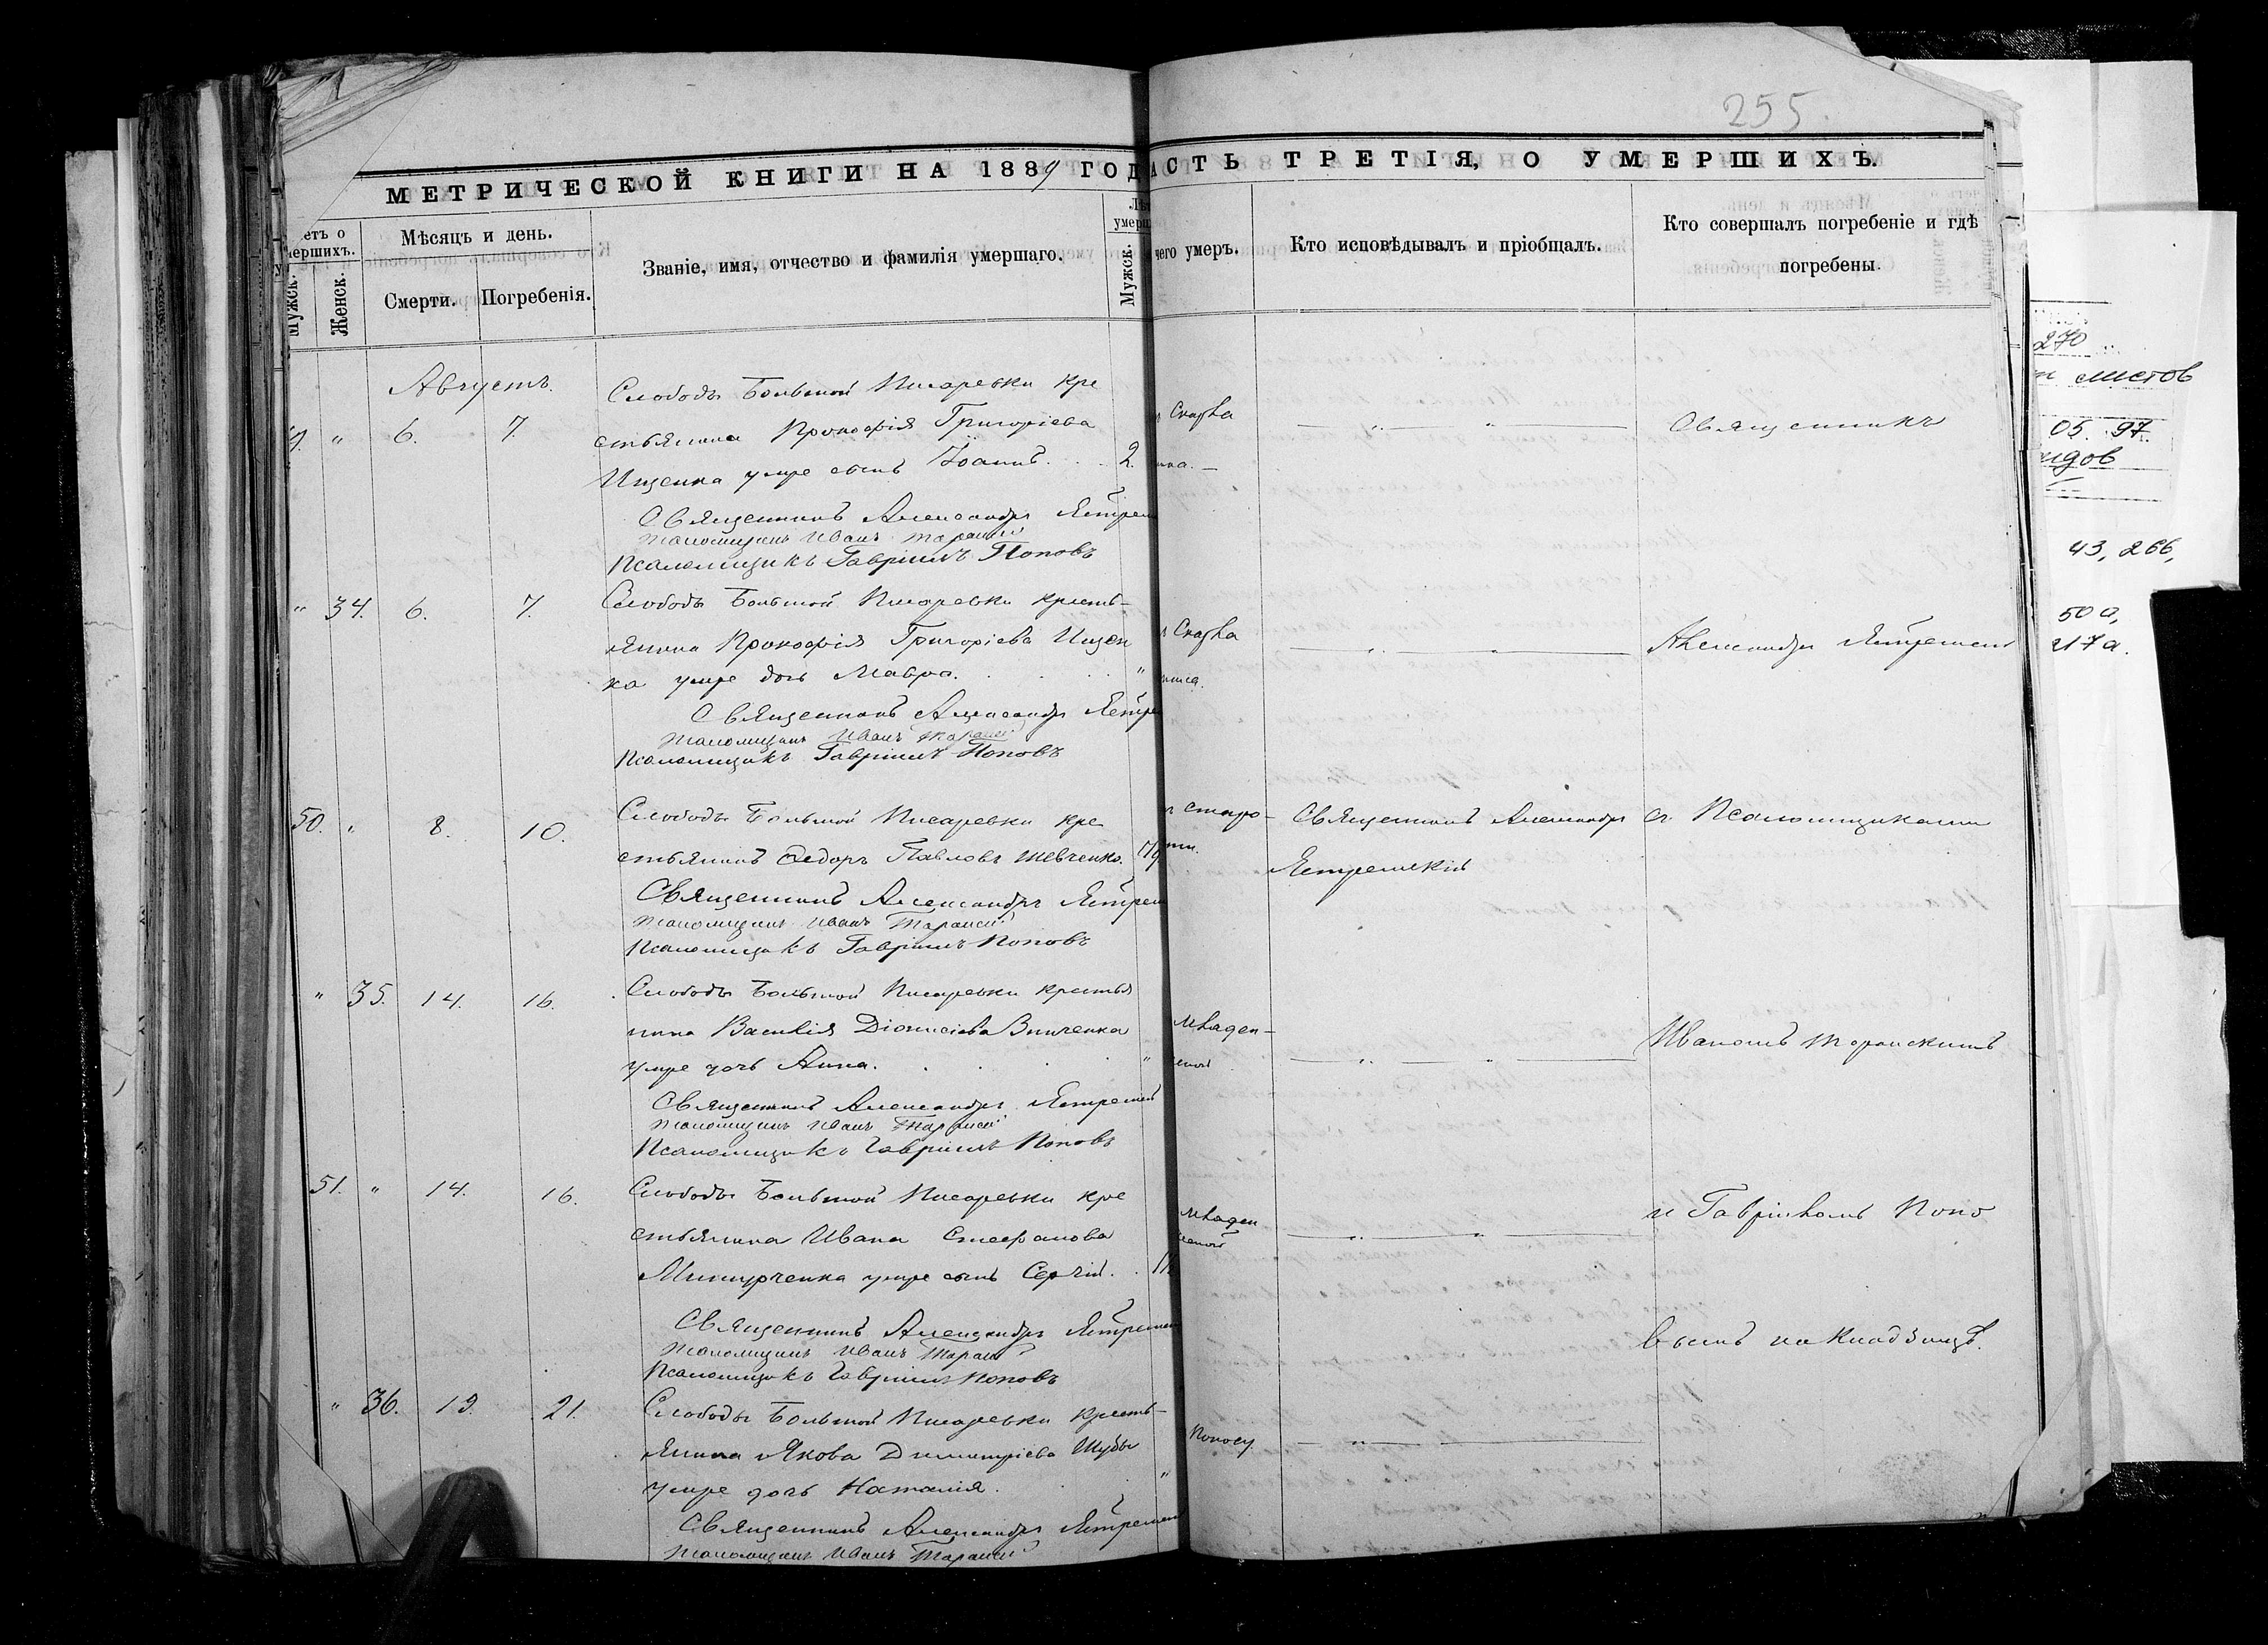 255.
МЕТРИЧЕСКОЙ КНИГИ НА 1889 ГОД
АСТЬ ТРЕТІЯ, О УМЕРШИХЪ.
етъ о
мершихъ.
Мужск.
Женск.
Мѣсяцъ и день.
Смерти.
Погребенія.
Званіе, имя, отчество и фамилія умершаго.
Лѣт
умерш
Мужск.
чего умеръ.
Кто исповѣдывалъ и пріобщалъ.
Кто совершалъ погребеніе и гдѣ
погребены.
Августъ.
9. " 6. 7.
Слободы Большой Писаревки кре
стьянина Прокофія Григоріева
Ищенка умре сынъ Іоаннъ. 2.
Священникъ Александръ Ястрем
Псаломщикъ Иванъ Торанскій
Псаломщикъ Гавріилъ Поповъ
Скарла
ина.
Священникъ
" 34. 6. 7.
Слободы Большой Писаревки кресть-
янина Прокофія Григоріева Ищен
ка умре дочь Мавра. "
Священникъ Александръ Ястрем
Псаломщикъ Иванъ Торанскій
Псаломщикъ Гавріилъ Поповъ
Скарла
тина.
Александръ Ястремск
50. " 8. 10.
Слободы Большой Писаревки кре
стьянинъ Федоръ Павловъ Шевченко.
Священникъ Александръ Ястрем
Псаломщикъ Иванъ Торанскій
Псаломщикъ Гавріилъ Поповъ
старо-
сти.
Священникъ Александръ
Ястремскій
съ Псаломщиками
" 35. 14. 16.
Слободы Большой Писаревки крестья
нина Василія Діонисіева Винченка
умре дочь Анна. "
Священникъ Александръ Ястремскій
Псаломщикъ Иванъ Торанскій
Псаломщикъ Гавріилъ Поповъ
младен-
ческой
Иваномъ Торанскимъ
51. " 14. 16.
Слободы Большой Писаревки кре
стьянина Ивана Стефанова
умре сынъ Сергій.
Священникъ Александръ Ястремск
Псаломщикъ Иванъ Торанскій
Псаломщикъ Гавріилъ Поповъ
младен
ческой
и Гавріиломъ Попо
вымъ на кладбищѣ.
" 36. 19. 21.
Слободы Большой Писаревки кресть-
янина Якова Димитріева Шубы
умре дочь Наталія. "
Священникъ Александръ Ястремск
Псаломщикъ Иванъ Торанскій
Поносу
270
листов
05. 97.
43, 266,
50а,
217а.